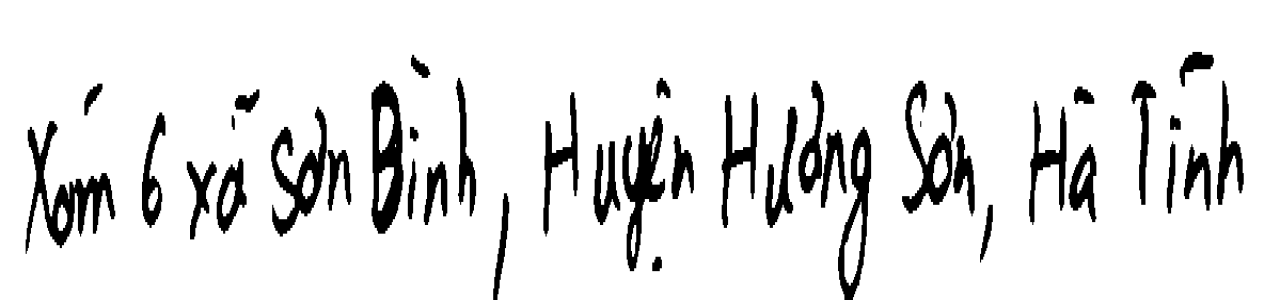 Xóm 6 xã Sơn Bình, Huyện Hương Sơn, Hà Tĩnh